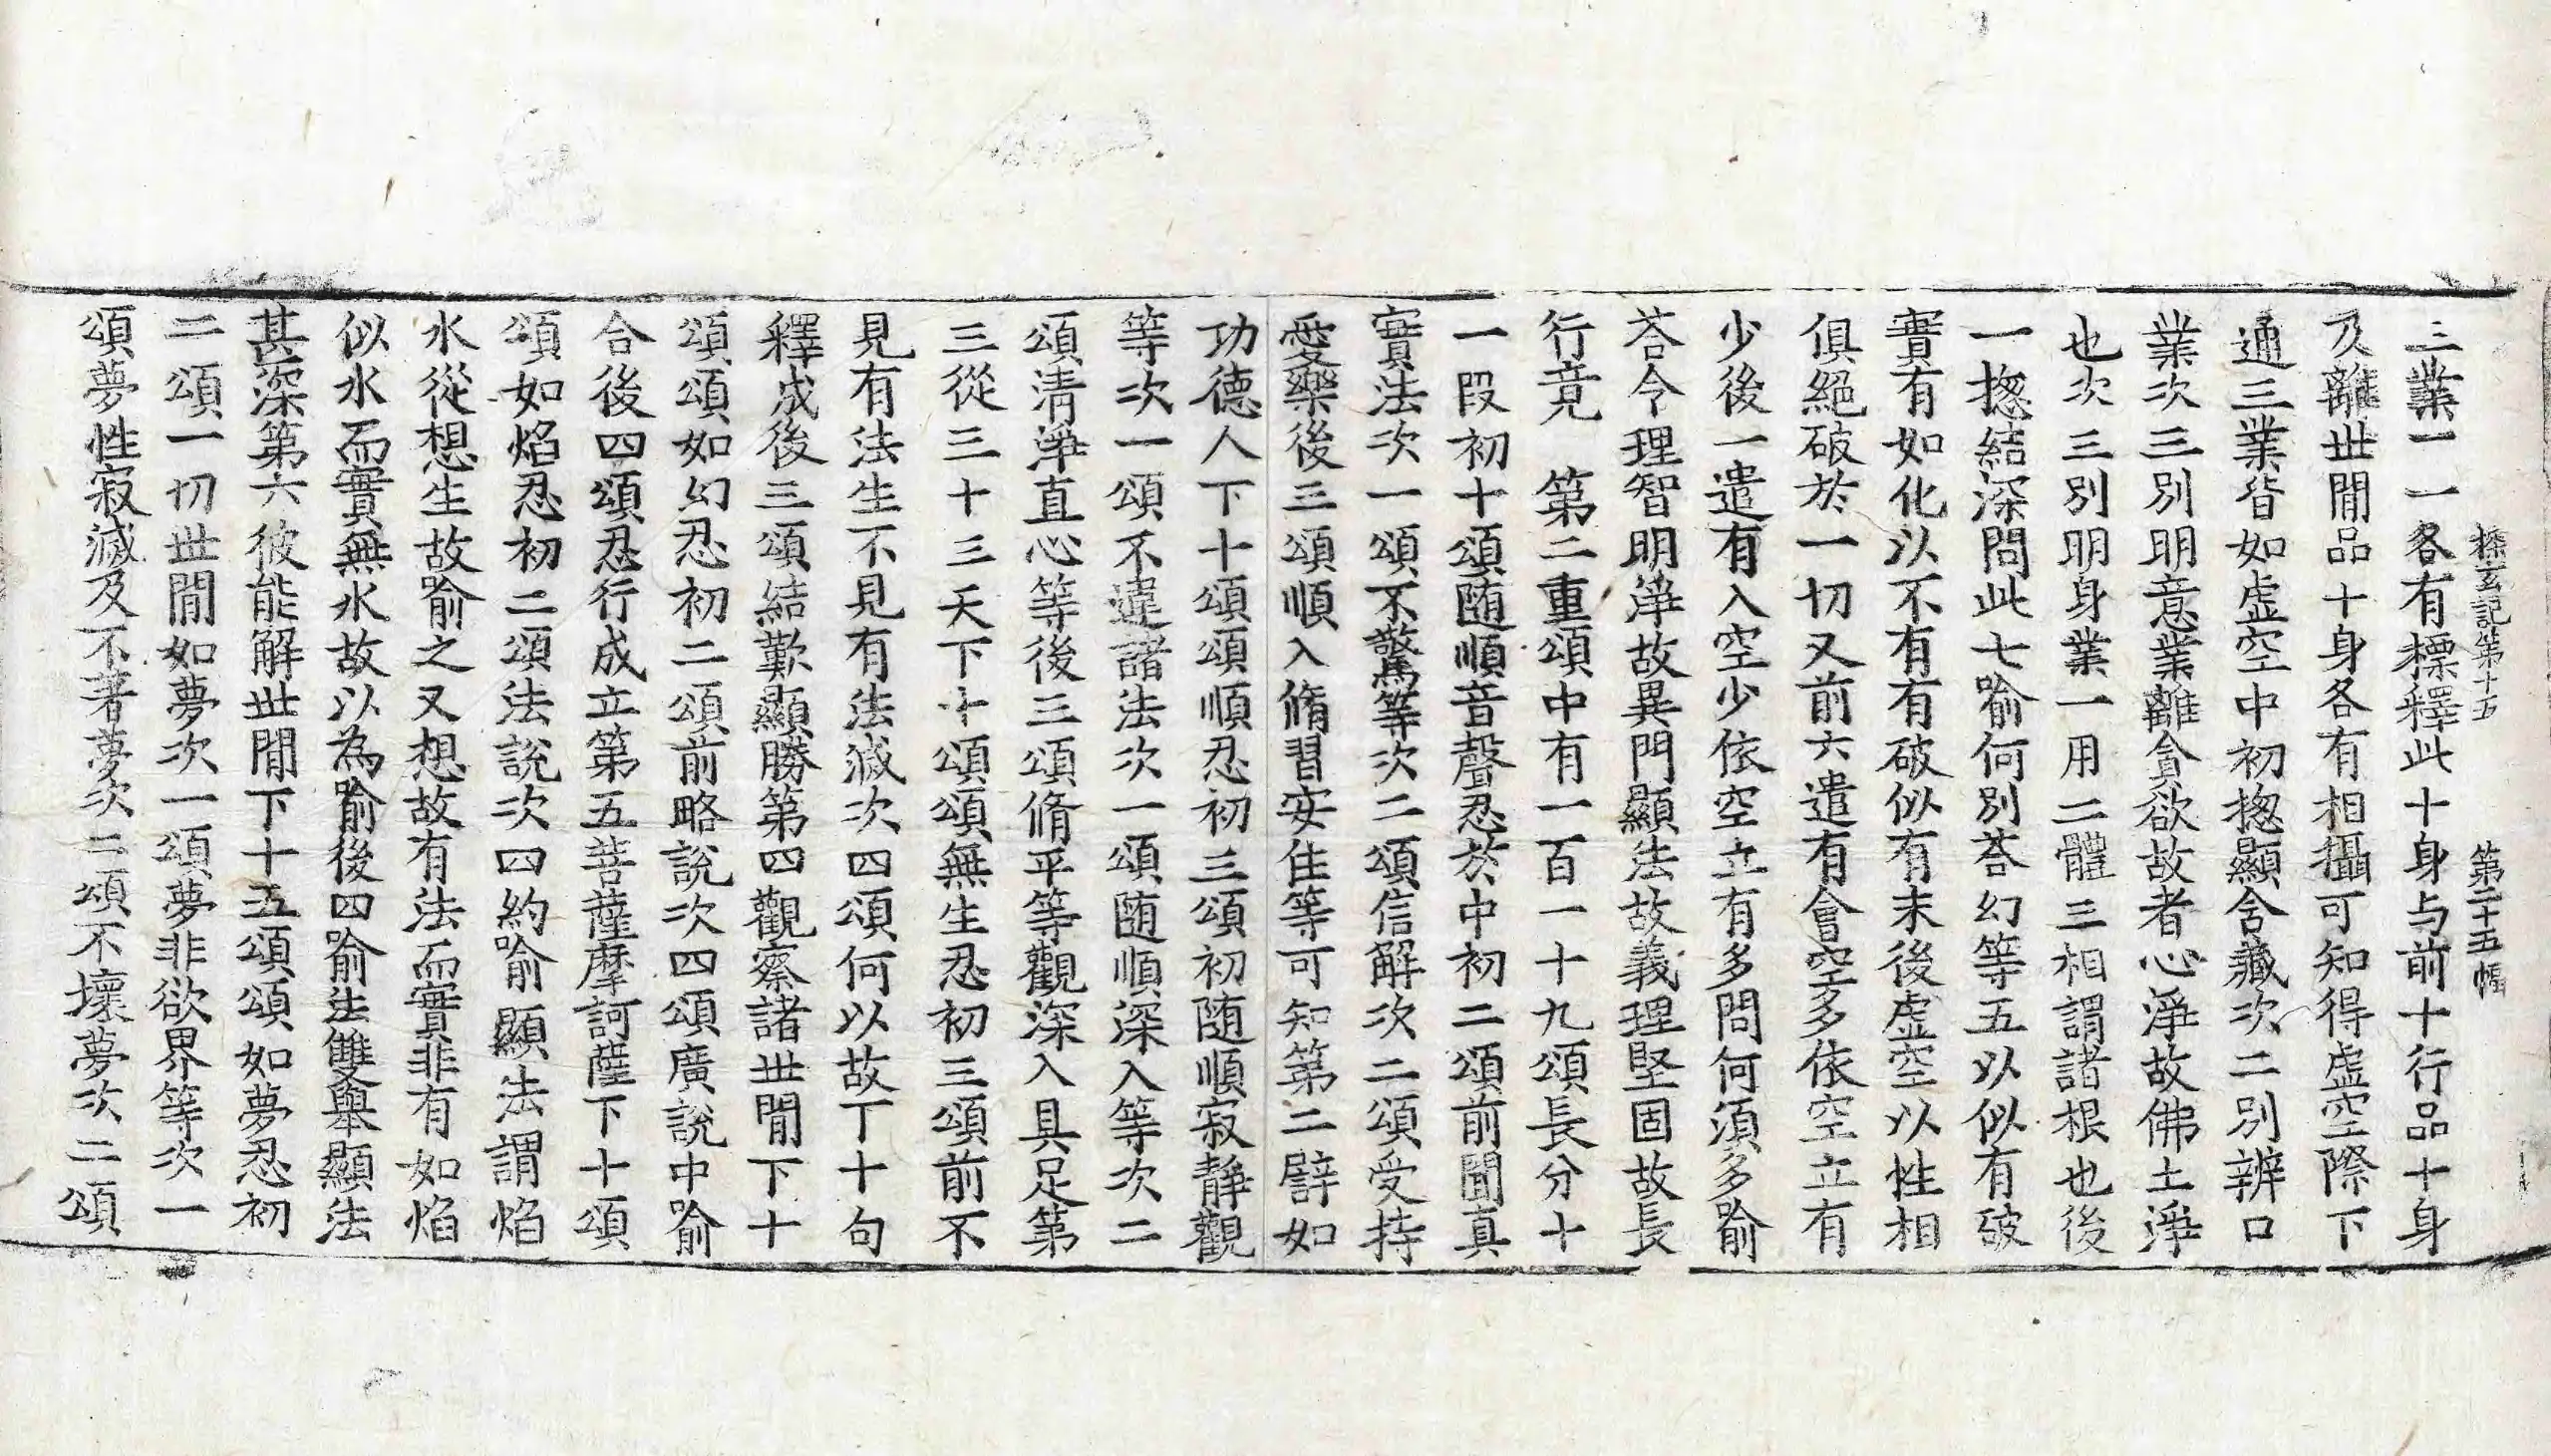 探玄記第十五　第二十五幅
三業一一各有標釋此十身与前十行品十身
及離世閒品十身各有相攝可知得虛空際下
通三業皆如虛空中初揔顯含藏次二別辨口
業次三別明意業離貪欲故者心淨故佛土淨
也次三別明身業一用二體三相謂諸根也後
一揔結深問此七喻何別荅幻等五以似有破
實有如化以不有有破似有末後虛空以性相
俱絕破於一切又前六遣有會空多依空立有
少後一遣有入空少依空立有多問何須多喻
荅令理智明淨故異門顯法故義理堅固故長
行竟　第二重頌中有一百一十九頌長分十
一段初十頌隨順音聲忍於中初二頌前聞真
實法次一頌不驚等次二頌信解次二頌受持
愛樂後三頌順入脩習安住等可知第二譬如
功德人下十頌頌順忍初三頌初随順寂静觀
等次一頌不違諸法次一頌随順深入等次二
頌清淨直心等後三頌脩平等觀深入具足第
三從三十三天下十頌頌無生忍初三頌前不
見有法生不見有法滅次四頌何以故丁十句
釋成後三頌結歎顯勝第四觀察諸世閒下十
頌頌如幻忍初二頌前略說次四頌廣說中喻
合後四頌忍行成立第五菩薩摩訶薩下十頌
頌如焰忍初二頌法說次四約喻顯法謂焰
水從想生故喻之又想故有法而實非有如焰
似水而實無水故以為喻後四喻法雙舉顯法
甚深第六彼能解世閒下十五頌頌如夢忍初
二頌一切世閒如夢次一頌夢非欲界等次一
頌夢性寂滅及不著夢次二頌不壞夢次二頌